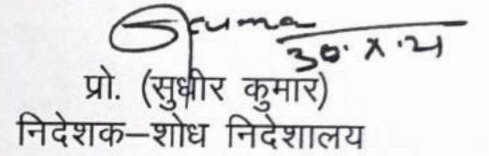 30.X.21
प्रो. (सुधीर कुमार)
निदेशक–शोध निदेशालय